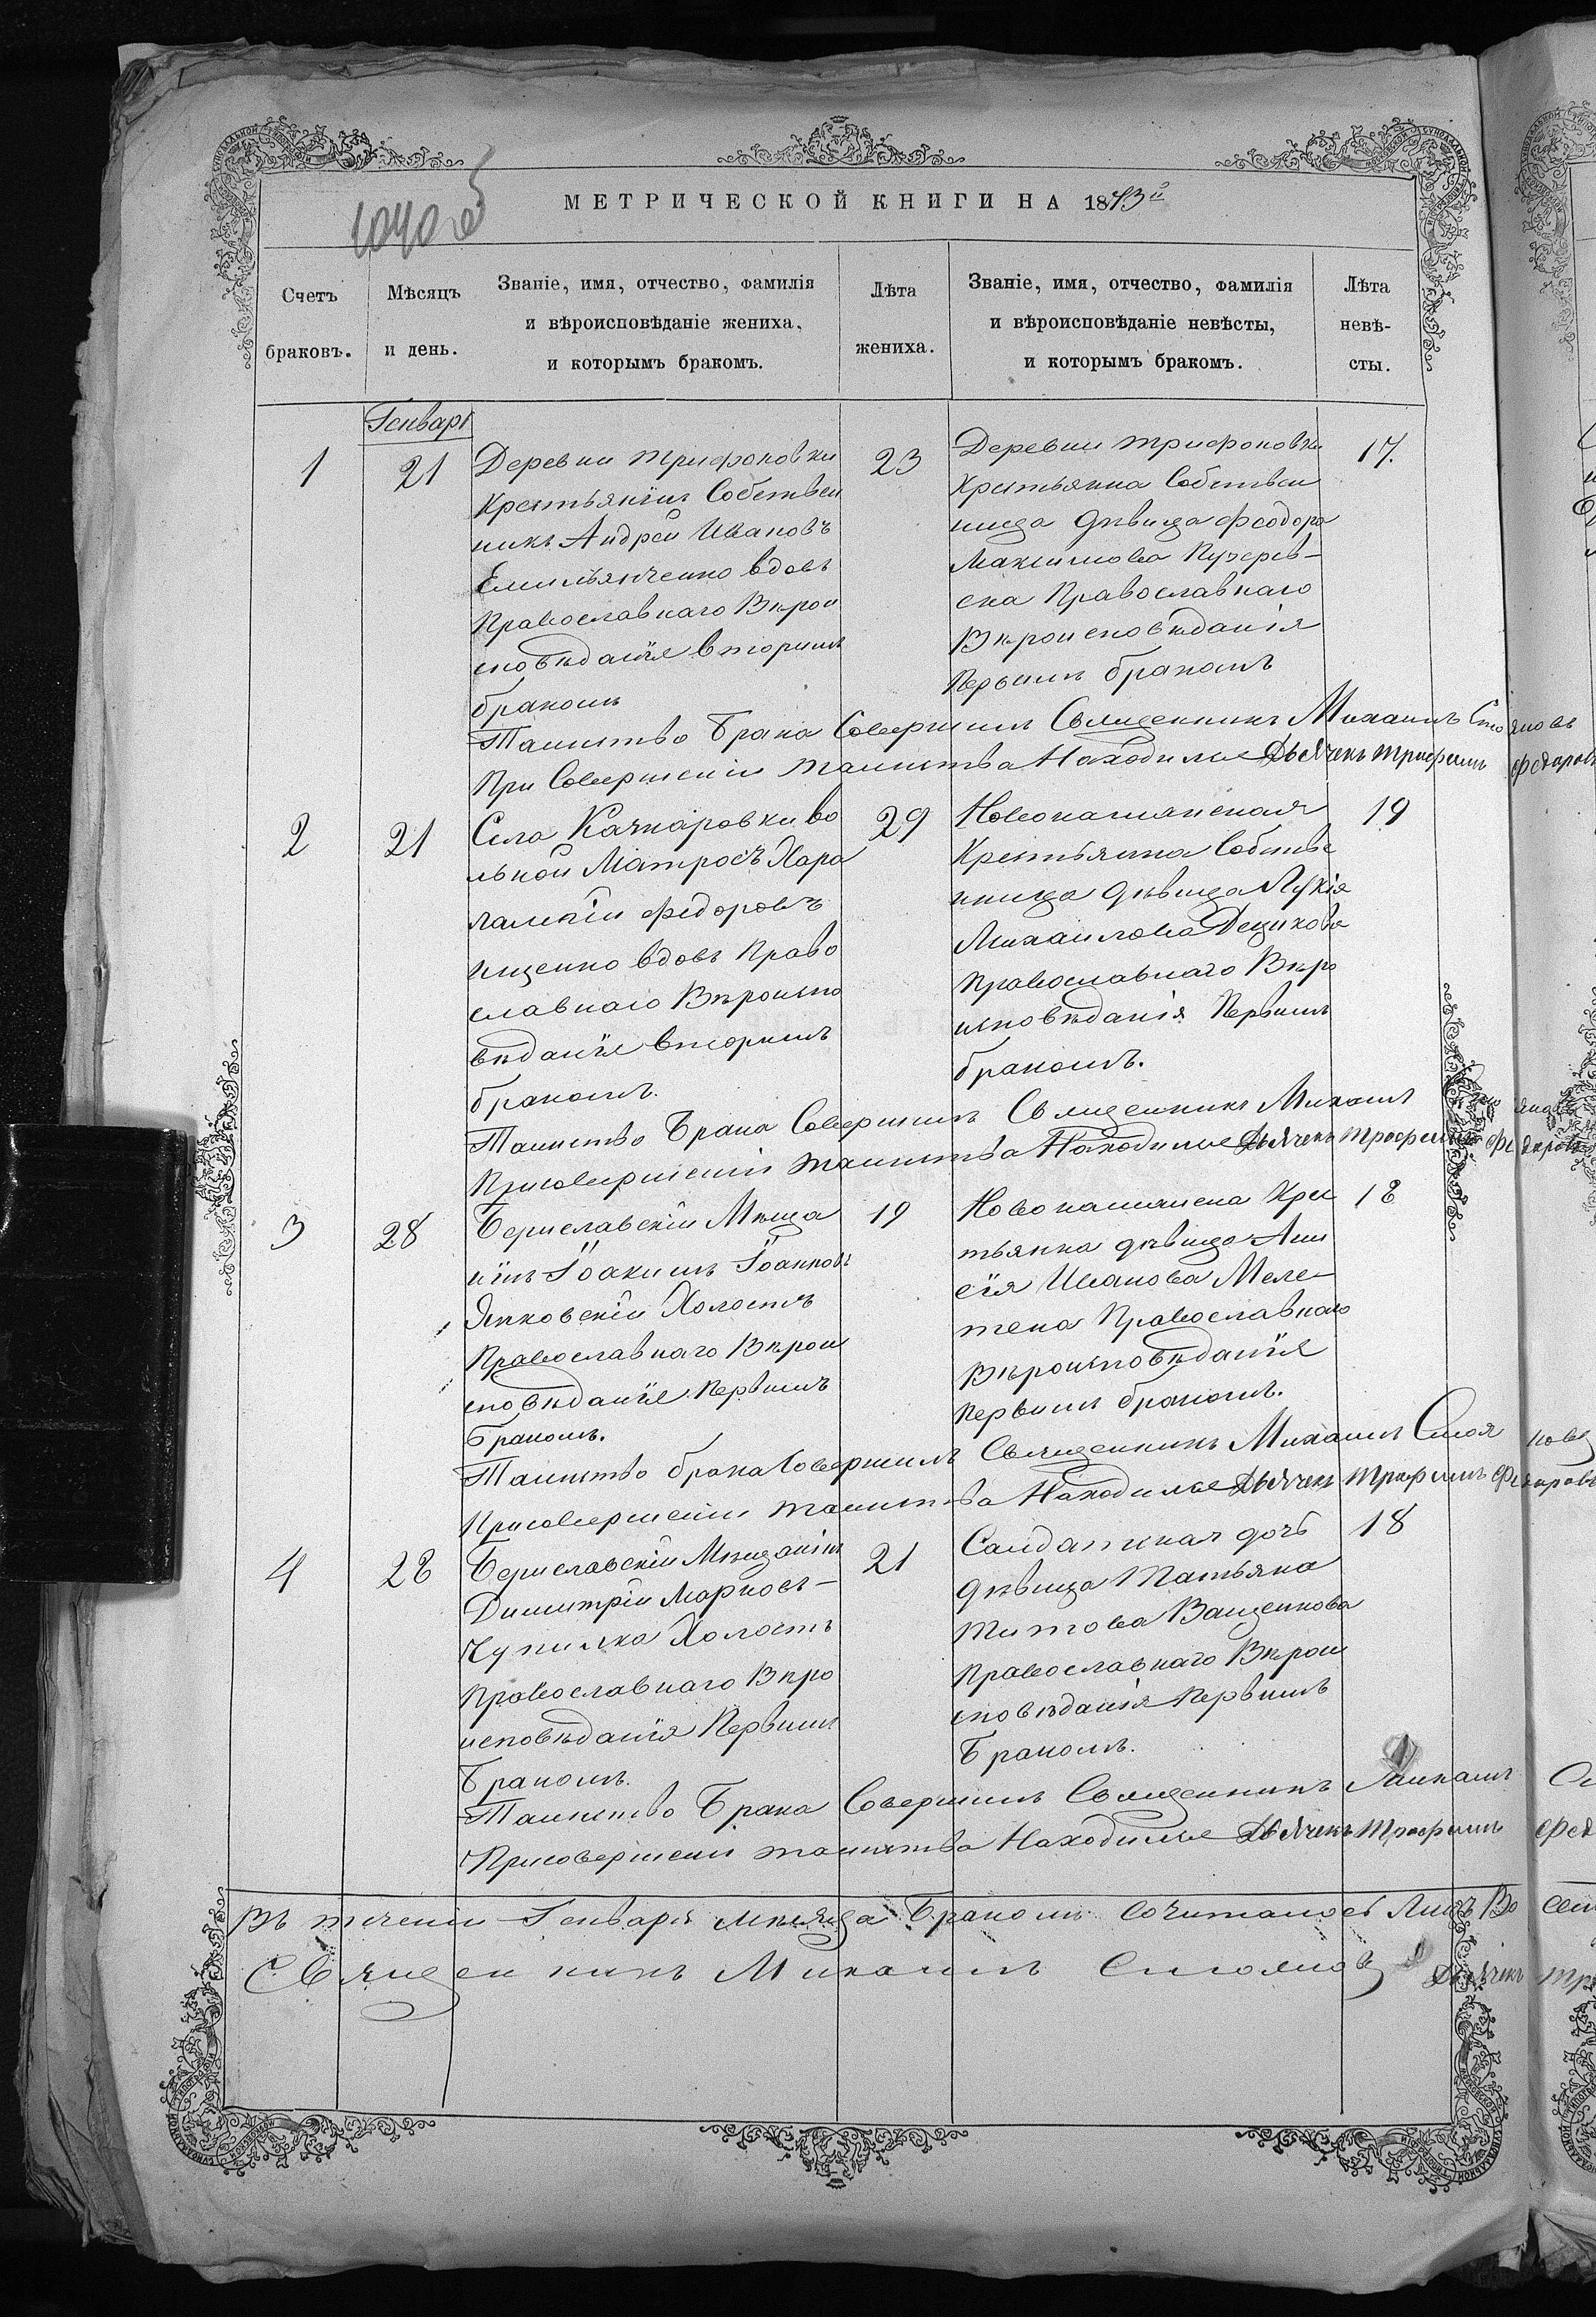 МЕТРИЧЕСКОЙ КНИГИ НА 1873й
Счетъ браковъ.
Мѣсяцъ и день.
Званіе, имя, отчество, фамилія
и вѣроисповѣданіе жениха,
и которымъ бракомъ.
Лѣта
жениха.
Званіе, имя, отчество, фамилія
и вѣроисповѣданіе невѣсты,
и которымъ бракомъ.
Лѣта
невѣ-
сты.
Генварь
1
21
Деревни Трифоновки
Крестьянинъ Собствен
никъ Андрей Ивановъ
Емильянченко вдовъ
Православнаго Вѣрои
сповѣданія вторымъ
бракомъ
23
Деревни Трифоновки
Крестьянка Собствен
ница дѣвица Феодора
Максимова Кучерев-
ска Православнаго
Вѣроисповѣданія
Первымъ бракомъ
17.
Таинство Брака Совершилъ Священникъ Михаилъ Стояновъ
При Совершеніи таинства Находился Дьячекъ Трофимъ Федоровъ
2
21
Села Качкаровки во
льной Матросъ Хара
лампій Федоровъ
ищенко вдовъ Право
славнаго Вѣроиспо
вѣданія вторымъ
бракомъ.
29
Крестьянка Собстве
нница дѣвица Лукія
Михаилова
Православнаго Вѣро
исповѣданія Первымъ
бракомъ.
19
Таинство Брака Совершилъ Священникъ Михаилъ
Присовершеніи таинства Находился Дьячекъ Трофимъ Федоровъ
3
28
Бериславскій Мѣща
нинъ Іоакимъ Іоанновъ
Яцковскій Холостъ
Православнаго Вѣрои
сповѣданія Первымъ
Бракомъ.
19
тьянка дѣвица Ани
сія Иванова Меле-
тена Православнаго
Вѣроисповѣданія
Первымъ бракомъ.
18
Таинство брака Совершилъ Священникъ Михаилъ Стояновъ
Присовершеніи таинства Находился Дьячекъ Трофимъ Федоровъ
4
28
Бериславскій Мѣщанинъ
Димитрій Марковъ-
Чупилко Холостъ
Православнаго Вѣро
исповѣданія Первымъ
Бракомъ.
21
Солдатская дочь
дѣвица Татьяна
Титова Ващенкова
Православнаго Вѣрои
сповѣданія Первымъ
Бракомъ.
18
Таинство Брака Совершилъ Священникъ Михаилъ
Присовершеніи таинства Находился Дьячекъ Трофимъ
Въ теченіи Генваря мѣсяца Бракомъ Сочиталось Лицъ Во
Священникъ Михаилъ Стояновъ Дьячекъ